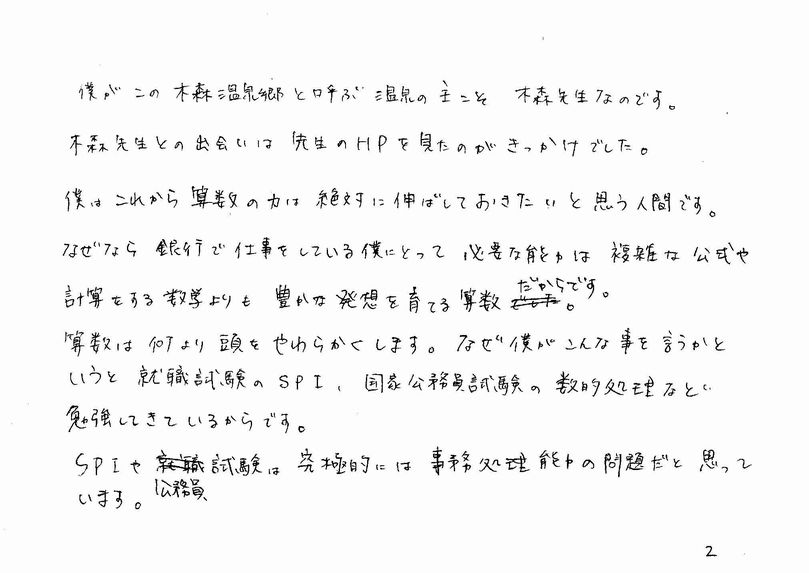 僕がこの木森温泉郷と呼ぶ温泉の主こそ 木森先生なのです。
木森先生との出会いは先生のHPを見たのがきっかけでした。
僕はこれから算数の力は絶対に伸ばしておきたいと思う人間です。
なぜなら銀行で仕事をしている僕にとって必要な能力は複雑な公式や
計算をする数学よりも豊かな発想を育てる算数だからです。
算数は何より頭をやわらかくします。なぜ僕がこんな事を言うかと
いうと就職試験のSPI、国家公務員試験の数的処理など
勉強してきているからです。
SPIや公務員試験は究極的には事務処理能力の問題だと思って
います。
2